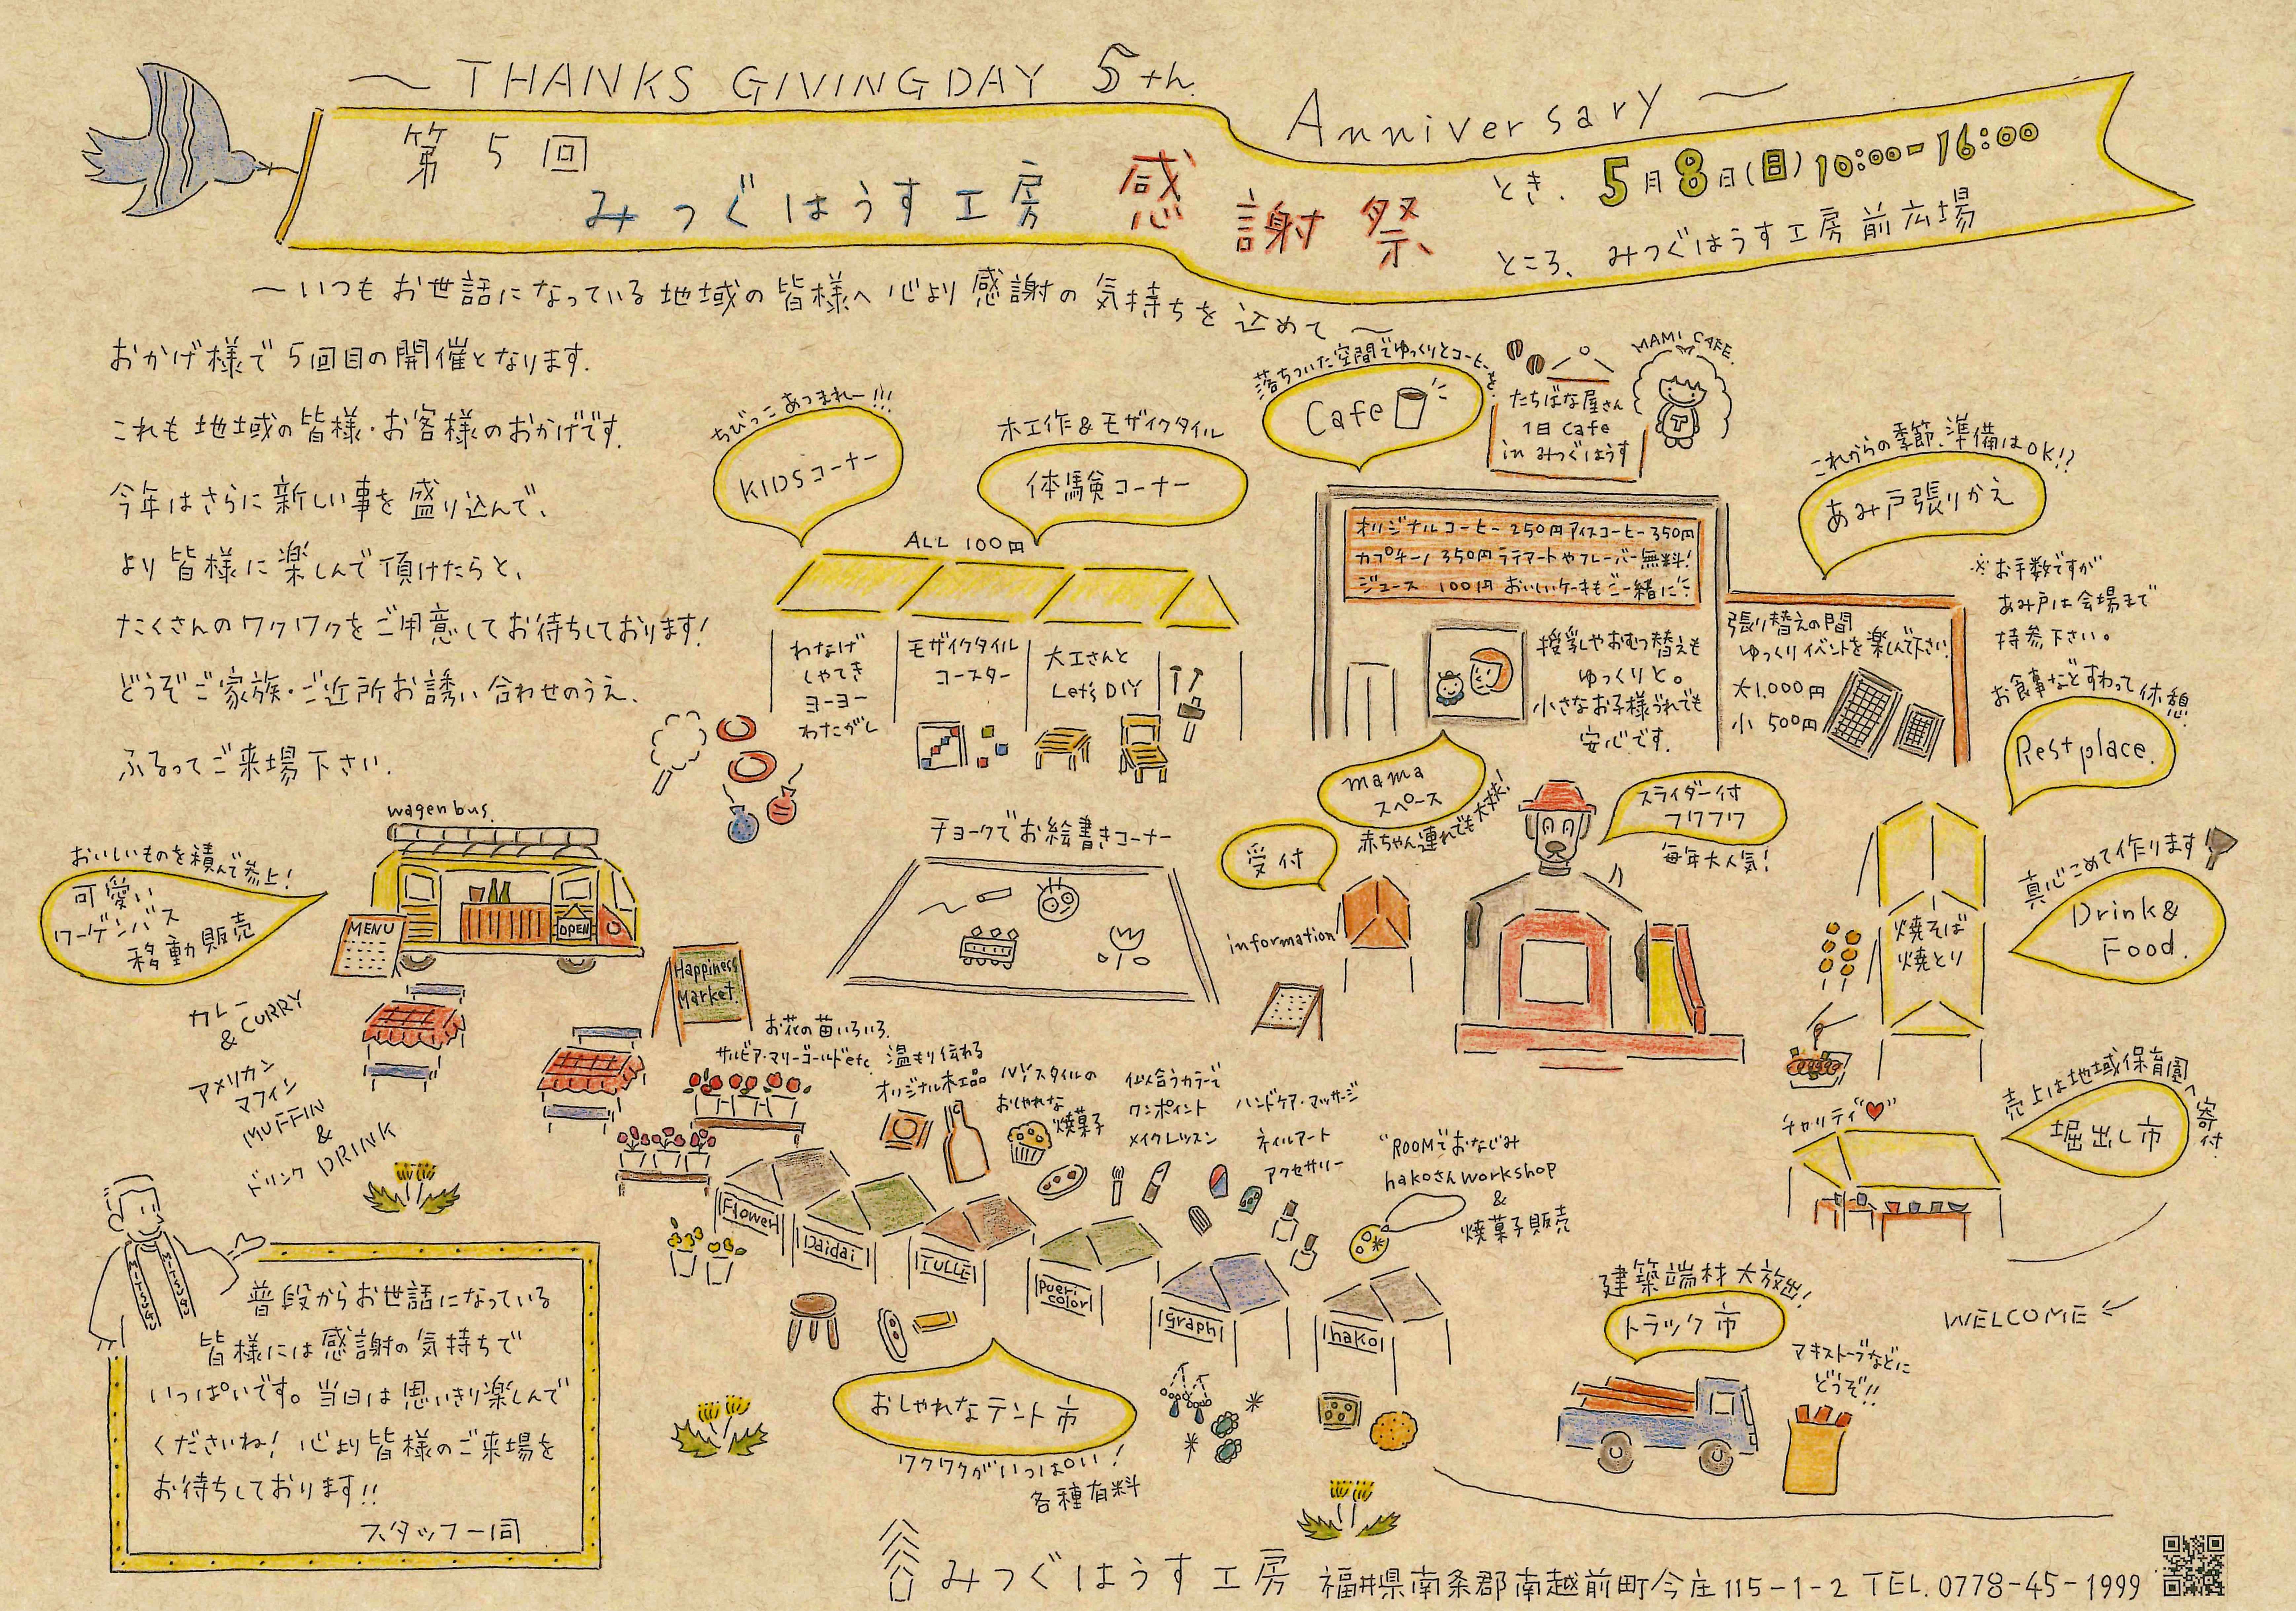 ～THANKS GIVINGDAY 5th. Anniversary～
第5回
みつぐはうす工房 感謝祭
とき. 5月8日(日) 10:00-16:00
ところ、みつぐはうす工房前広場
～いつもお世話になっている地域の皆様へ心より感謝の気持ちを込めて～
おかげ様で5回目の開催となります.
これも地域の皆様・お客様のおかげです.
今年はさらに新しい事を盛り込んで、
より皆様に楽しんで頂けたらと、
たくさんのワクワクをご用意してお待ちしております!
どうぞご家族・ご近所お誘い合わせのうえ、
ふるってご来場下さい.
ちびっこあつまれー!!!
KIDSコーナー
木工作&モザイクタイル
体験コーナー
ALL 100円
わなげ
しゃてき
ヨーヨー
わたがし
モザイクタイル
コースター
大工さんと
Let's DIY
落ちついた空間でゆっくりとコーヒーを.
Cafe
たちばな屋さん
1日 Cafe
in みつぐはうす
MAMI CAFE.
T
オリジナルコーヒー 250円 アイスコーヒー 350円
カプチーノ 350円 ラテアートやフレーバー無料!
ジュース 100円 おいしいケーキもご一緒に
授乳やおむつ替えも
ゆっくりと。
小さなお子様づれでも
安心です.
mama
スペース
赤ちゃん連れでも大丈夫!
これからの季節.準備はOK!?
あみ戸張りかえ
※お手数ですが
あみ戸は会場まで
持参下さい。
張り替えの間
ゆっくりイベントを楽しんで下さい!
大1.000円
小 500円
お食事などすわって休憩
Rest place.
wagen bus.
おいしいものを積んで参上!
可愛い
ワーゲンバス
移動販売
MENU
OPEN
カレー
& CURRY
アメリカン
マフィン
MUFFIN
&
ドリンク DRINK
チョークでお絵書きコーナー
受付
information
スライダー付
フワフワ
毎年大人気!
真心こめて作ります
Drink&
Food.
焼そば
焼とり
売上は地域保育園へ寄付.
堀出し市
チャリティ
Happiness
Market.
お花の苗いろいろ.
サルビア・マリーゴールドetc
温もり伝わる
オリジナル木工品
NYスタイルの
おしゃれな
焼菓子
似合うカラーで
ワンポイント
メイクレッスン
ハンドケア・マッサージ
ネイルアート
アクセサリー
"ROOMでおなじみ
hakoさんworkshop
&
焼菓子販売
Flower
Daidai
TULLE
pueri
color
graph
hako
おしゃれなテント市
ワクワクがいっぱい!
各種有料
建築端材大放出!
トラック市
マキストーブなどに
どうぞ!!
WELCOME ←
MITSUGU
MITSUGU
普段からお世話になっている
皆様には感謝の気持ちで
いっぱいです。当日は思いきり楽しんで
くださいね! 心より皆様のご来場を
お待ちしております!!
スタッフ一同
みつぐはうす工房 福井県南条郡南越前町今庄115-1-2 TEL.0778-45-1999